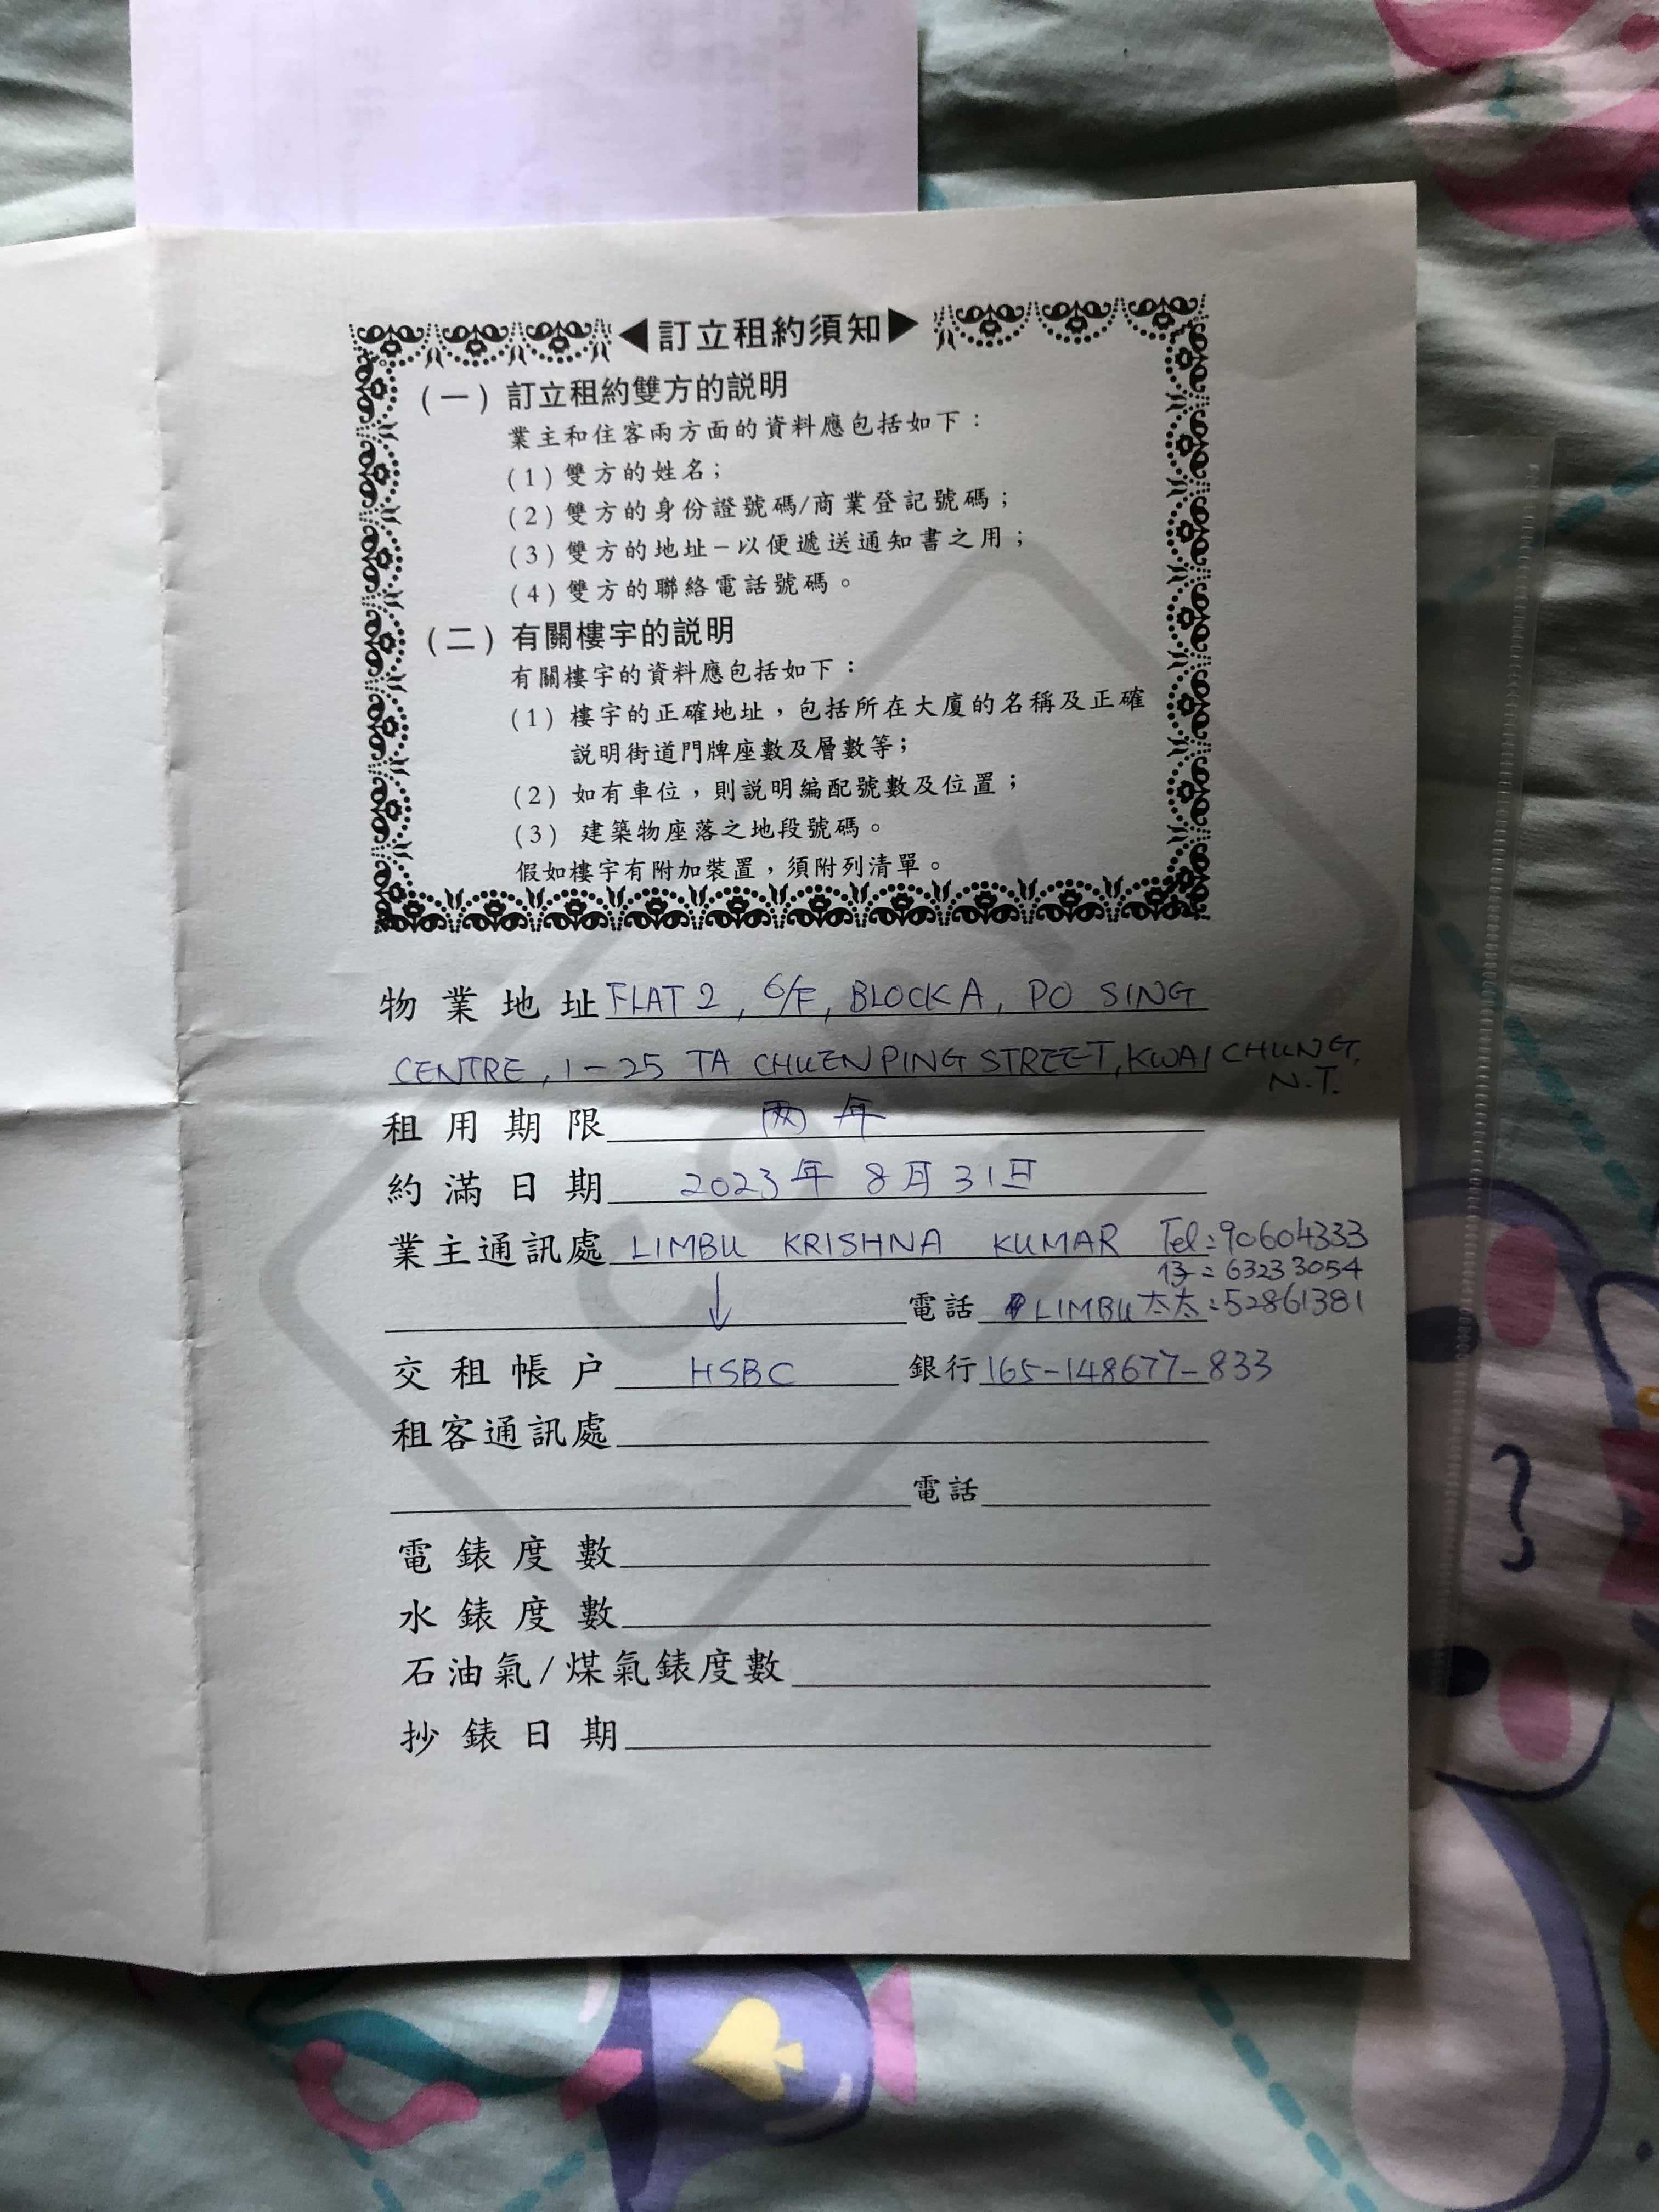 ◀訂立租約須知▶
(一) 訂立租約雙方的説明
業主和住客兩方面的資料應包括如下：
(1) 雙方的姓名；
(2) 雙方的身份證號碼/商業登記號碼；
(3) 雙方的地址－以便遞送通知書之用；
(4) 雙方的聯絡電話號碼。
(二) 有關樓宇的説明
有關樓宇的資料應包括如下：
(1) 樓宇的正確地址，包括所在大廈的名稱及正確
説明街道門牌座數及層數等；
(2) 如有車位，則説明編配號數及位置；
(3) 建築物座落之地段號碼。
假如樓宇有附加裝置，須附列清單。
COPY
物業地址 FLAT 2, 6/F, BLOCK A, PO SING
CENTRE, 1-25 TA CHUEN PING STREET, KWAI CHUNG,
N.T.
租用期限 兩年
約滿日期 2023年8月31日
業主通訊處 LIMBU KRISHNA KUMAR Tel: 90604333
仔: 63233054
電話 LIMBU太太: 52861381
交租帳户 HSBC 銀行 165-148677-833
租客通訊處
電話
電錶度數
水錶度數
石油氣/煤氣錶度數
抄錶日期